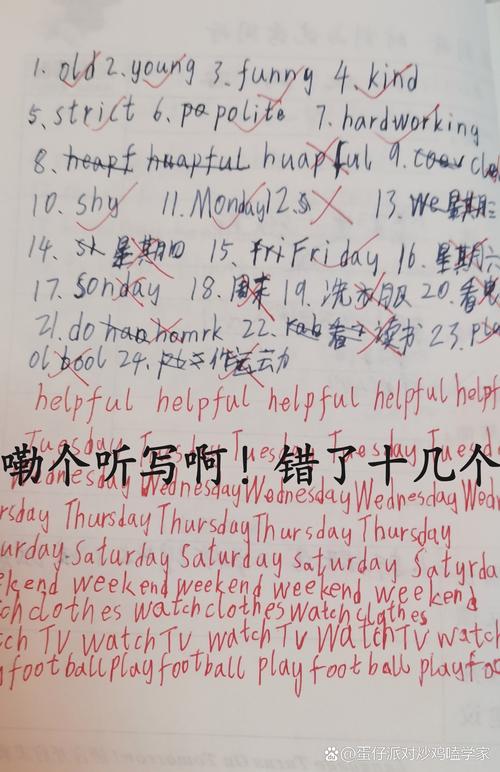 1. old 2. young 3. funny 4. kind
5. strict 6. po polite 7. hardworking
8. heapf huapful huapful 9.
10. shy 11. Monday 12. 13. We 星期三
14. 星期四 15. Fri Friday 16. 星期六
17. Sonday 18. 周末 19. 洗衣服 20. 看
21. do homrk 22. 看 读书 23.
24. 作运动
helpful helpful helpful helpful helpf
Tuesday Tuesday Tuesday Tuesday Tuesd
嘞个听写啊！错了十几个
Wednesday Wednesday Wednesday Wednesday Wed
rsday Thursday Thursday Thursday Thursday
urday Saturday Saturday saturday Satyrda
ekend weekend weekend weekend weekend
ch clothes watch clothes watch clothes
tch TV watch TV watch TV watch TV watch
y football play football play football play foo
@蛋仔派对炒鸡嗑学家